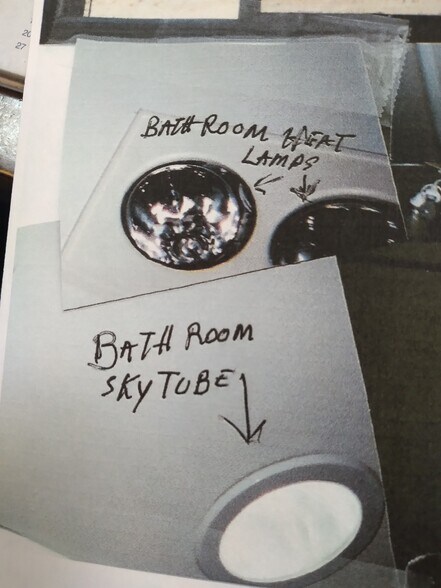 20
27
BATHROOM HEAT
LAMPS
BATHROOM
SKYTUBE